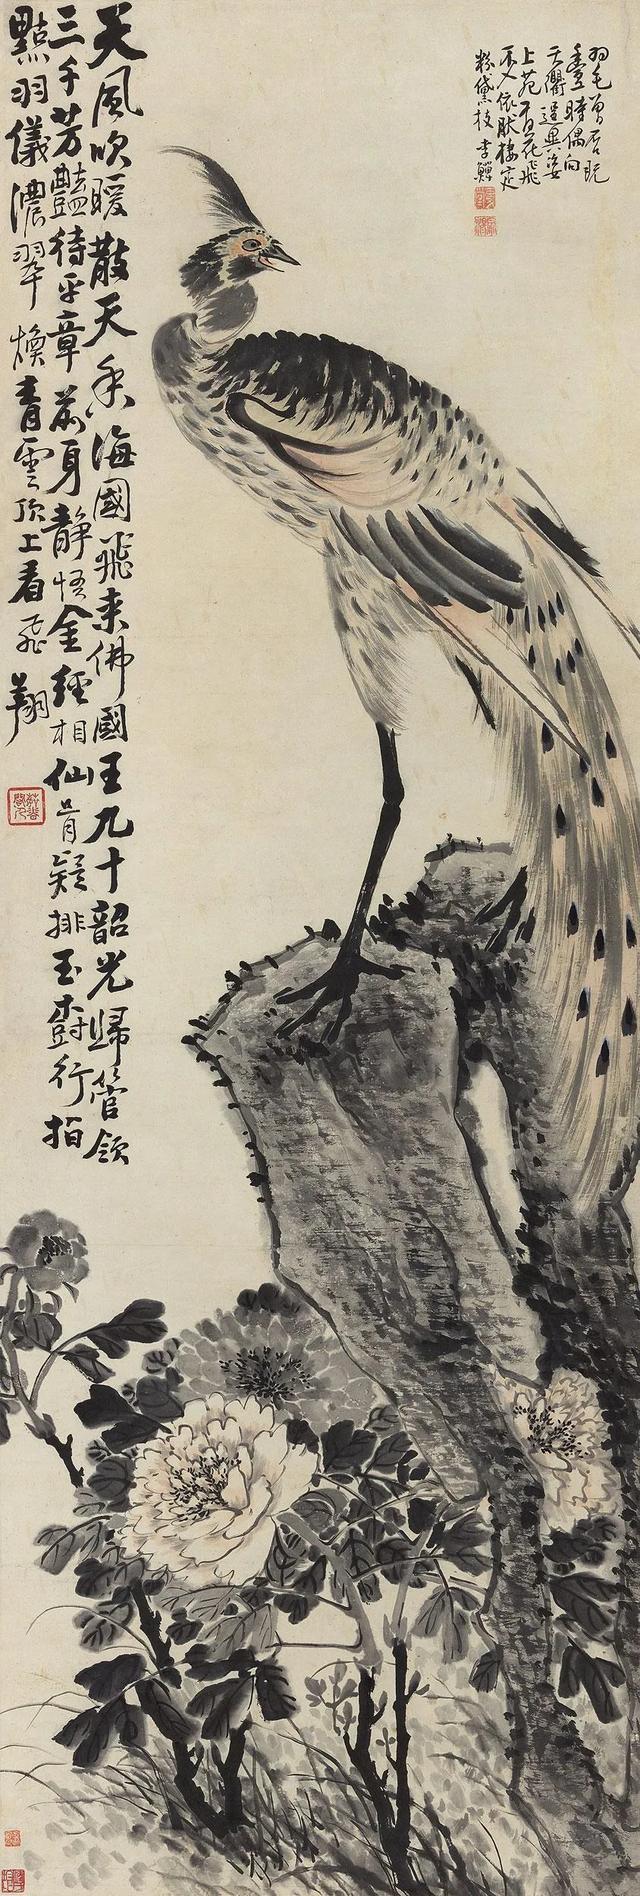 羽毛曾否既
豐時偶向
天衢逞異姿
上苑百花飛
不入依然棲定
粉黛枝 李鱓
天風吹暖散天香海國飛来佛國王九十韶光歸管領
三千芳豔待平章前身静悟金經相仙骨疑排玉樹行指
點羽儀濃翠煥青雲頂上看飛翔